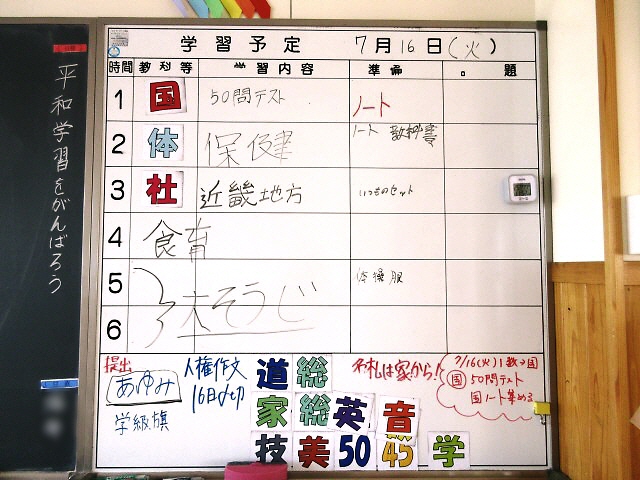 平和学習をがんばろう
学習予定 7月16日(火)
時間 教科等 学習内容 準備 題
1 国 50問テスト ノート
2 体 保健 ノート 教科書
3 社 近畿地方 いつものセット
4 食育
5 体操服
6
そうじ
提出
あゆみ
学級旗
人権作文
16日〆切
道 総
家 総 英 音
技 美 50 45 学
名札は家から!
7/16(火)1数→国
国 50問テスト
国ノート集める